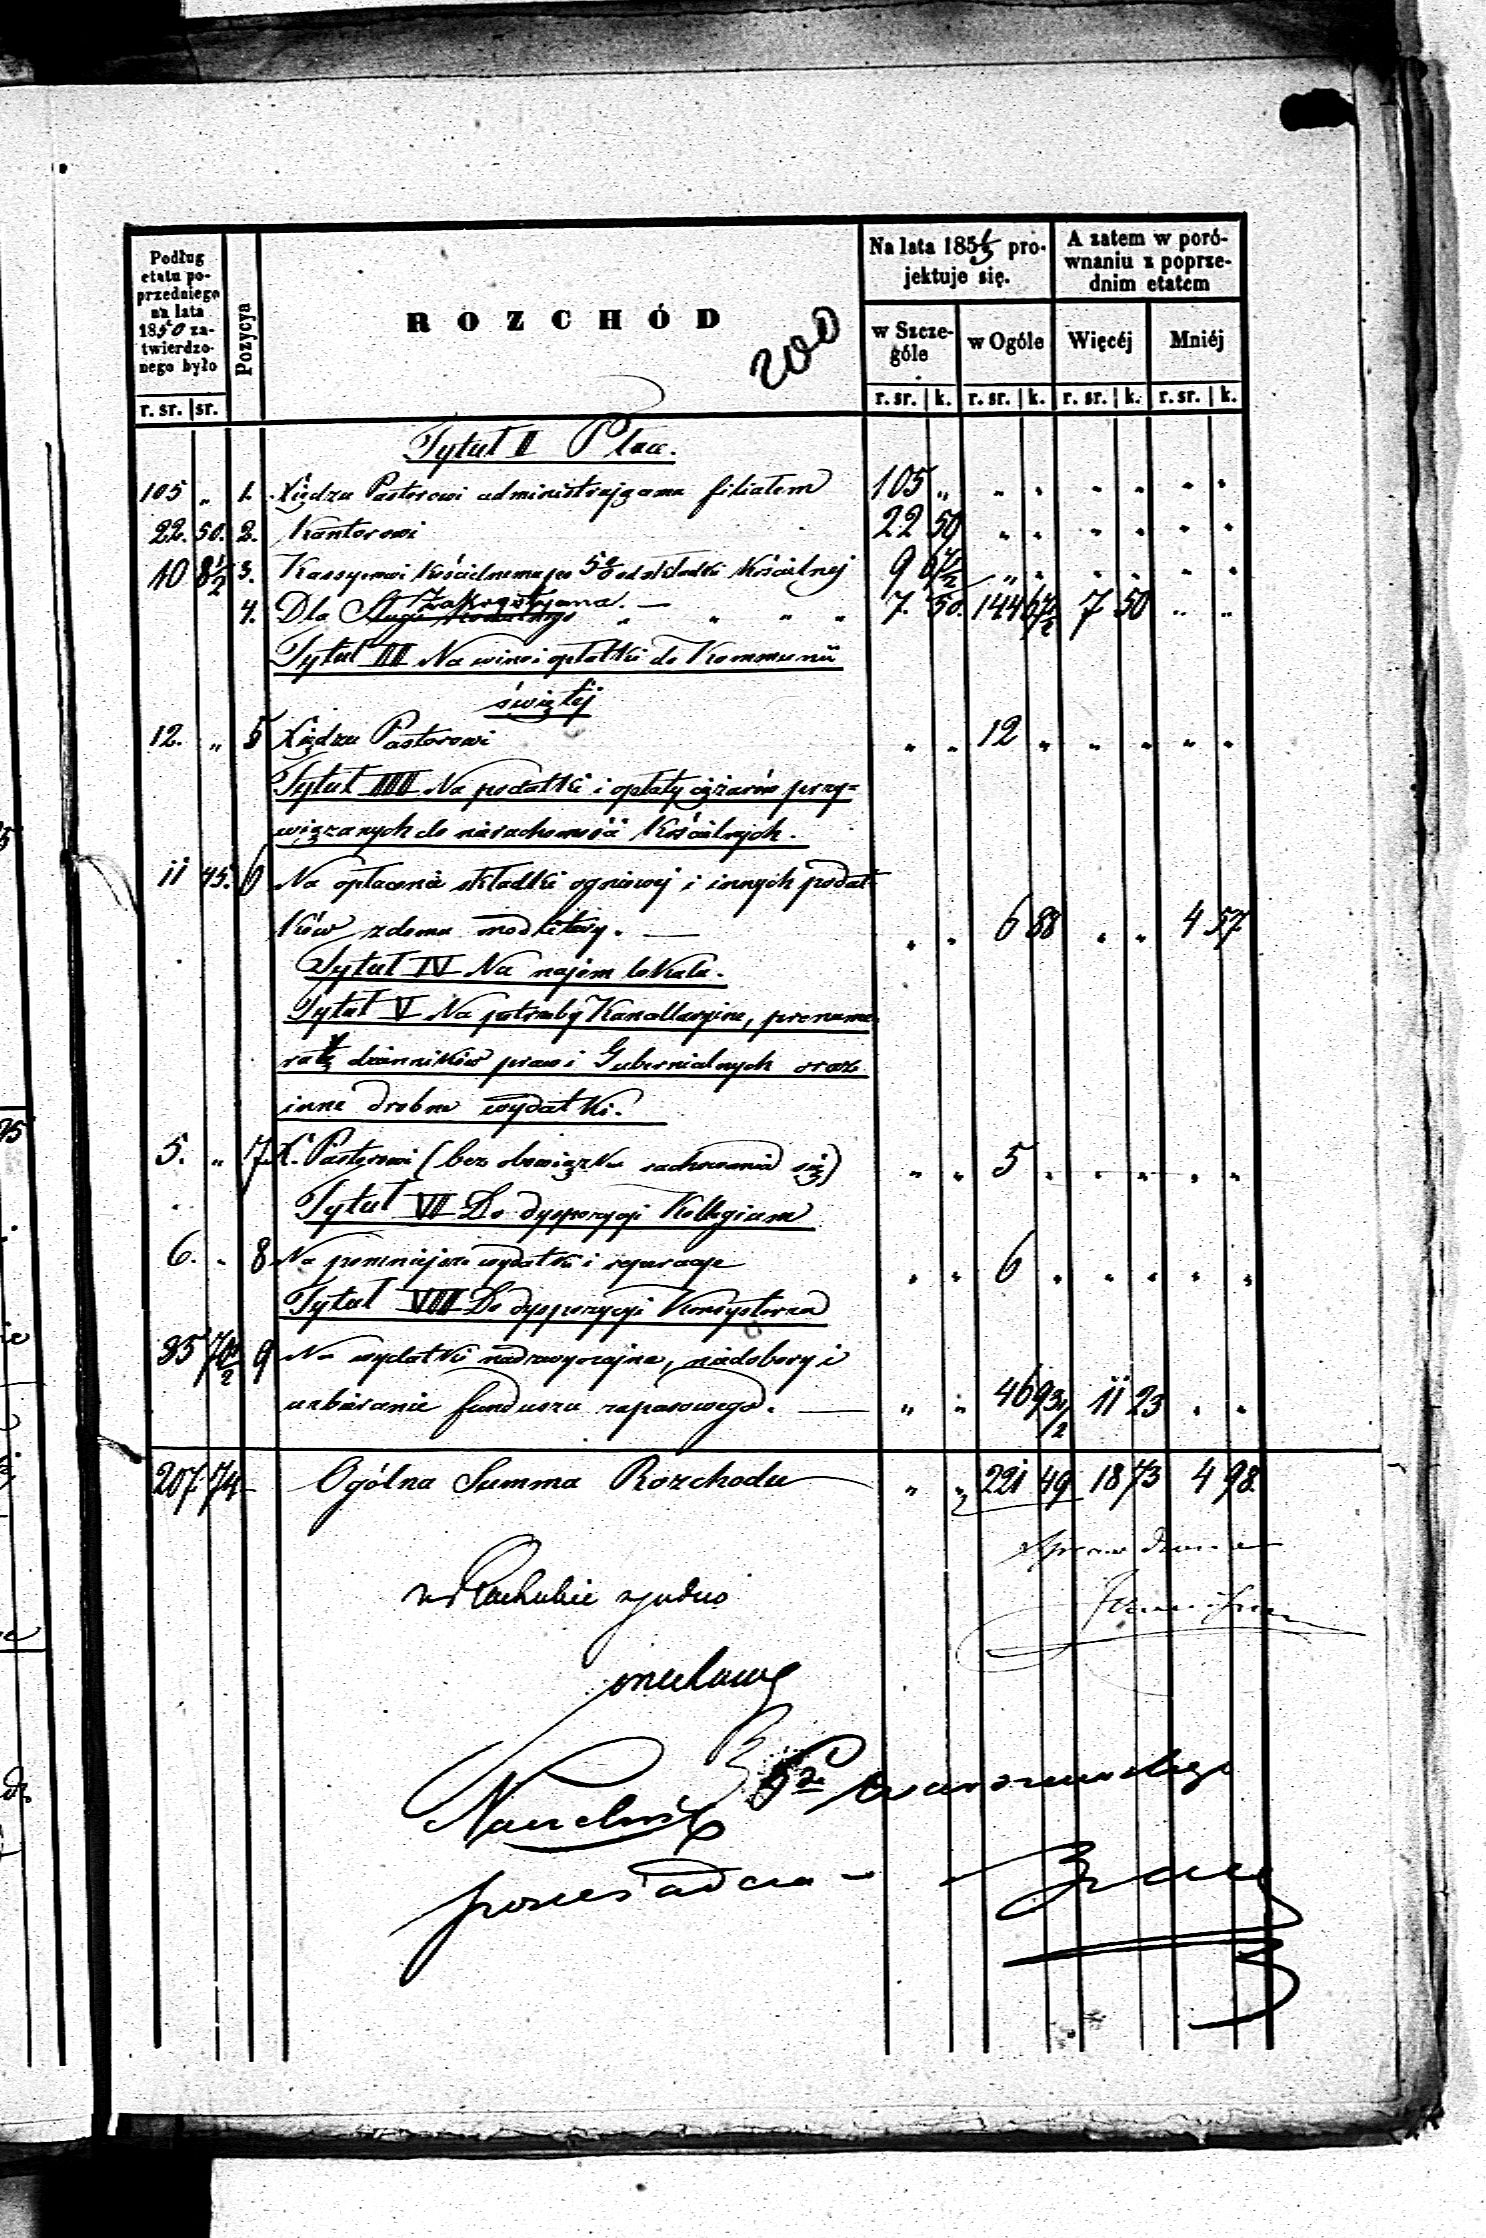 Podług etatu poprzedniego na lata 1850 zatwierdzonego było
Pozycya
ROZCHÓD
200
Na lata 185 projektuje się.
A zatem w porównaniu z poprzednim etatem
w Szczególe
w Ogóle
Więcéj
Mniéj
r. sr. | sr.
r. sr. | k. r. sr. | k. r. sr. | k. r. sr. | k.
Tytuł II Płace.
105 „ 1. Xiędzu Pastorowi administrującemu filiałem 105 „ „ „ „ „ „ „
22. 50. 2. Kantorowi 22 50 „ „ „ „ „ „
10 8½ 3. Kassyerowi kościelnemu po 5% od składki kościelnej 9 6½ „ „ „ „ „ „
4. Dla Zakrystyana. — 7. 50. 144 6½ 7 50 „ „
Tytuł III Na wino i opłatki do Kommunii
świętéj
12. „ 5 Xiędzu Pastorowi „ „ 12 „ „ „ „ „
Tytuł IIII Na podatki i opłaty ciężarów przy-
wiązanych do nieruchomości Kościelnych.
11 45. 6 Na opłacenie składki ogniowej i innych podat-
ków z domu modlitwy. — „ „ 6 88 „ „ 4 57
Tytuł IV Na najem lokalu.
Tytuł V Na potrzeby Kancellaryjne, prenume-
ratę dzienników praw i Gubernialnych oraz
inne drobne wydatki.
5. „ 7. X. Pastorowi (bez obowiązku rachowania się) „ „ 5 „ „ „ „ „
Tytuł VI Do dyspozycyi Kollegium
6. „ 8 Na pomniejsze wydatki i reparacje „ „ 6 „ „ „ „ „
Tytuł VII Do dyspozycyi Konsystorza
35 70½ 9 Na wydatki nadzwyczajne, niedobory i
uzbieranie funduszu zapasowego. — „ „ 46 93½ 11 23 „ „
207. 74 — Ogólna Summa Rozchodu — „ „ 221 49 18 73 4 98.
w Rachubie zgodno
Naczelnik
poświadcza —